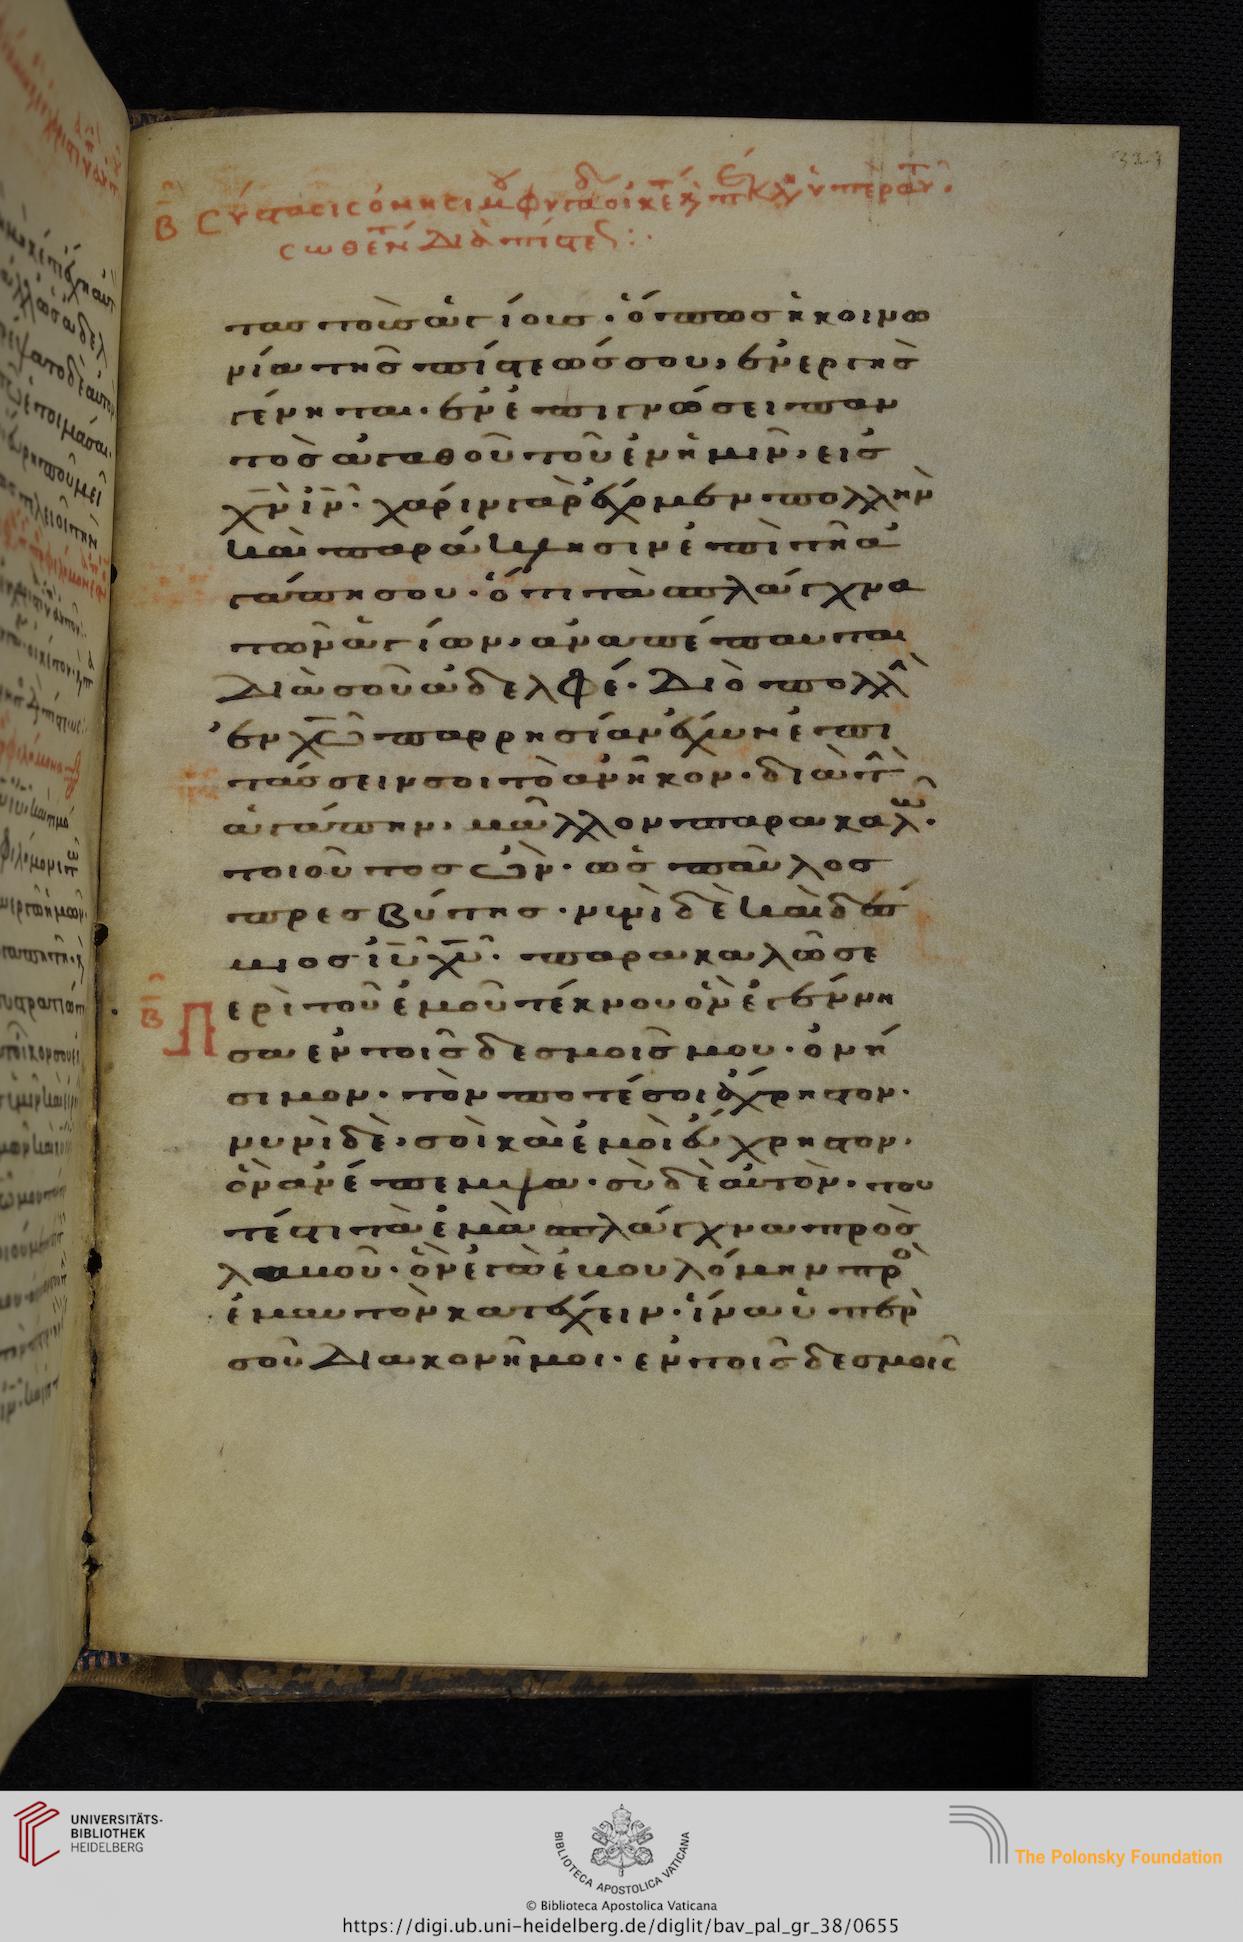 327
Β Σύστασις ὀνησίμου
σωθέντ διὰ πίστεως:
τασ τοὺσ ἁγίουσ· ὅπωσ ἡ κοινω
νία τῆσ πίστεώσ σου, ἐνεργὴσ
γένηται· ἐν ἐπιγνώσει παν
τὸσ ἀγαθοῦ τοῦ ἐν ἡμῖν, εἰσ
χ̅ν ι̅ν· χάριν γὰρ ἔχομεν πολλὴν
καὶ παράκλησιν ἐπὶ τῆ ἀ
γάπη σου· ὅτι τὰ σπλάγχνα
τῶν ἁγίων, ἀναπέπαυται
διὰ σοῦ ἀδελφέ· Διὸ πολλὴ
ἐν χ̅ω̅ παρρησίαν ἔχων ἐπι
τάσσειν σοι τὸ ἀνῆκον· διὰ τὴ
ἀγάπην, μᾶλλον παρακαλῶ·
τοιοῦτοσ ὤν· ὡσ παῦλοσ
πρεσβύτησ· νυνὶ δὲ καὶ δέσ
μιοσ ι̅υ̅ χ̅υ̅· παρακαλῶ σε
Β Π
ερὶ τοῦ ἐμοῦ τέκνου ὃν ἐγέννη
σα ἐν τοῖσ δεσμοῖσ μου· ὀνή
σιμον· τόν ποτέ σοι ἄχρηστον·
νυνὶ δὲ, σοὶ καὶ ἐμοὶ εὔχρηστον·
ὃν ἀνέπεμψα· σὺ δὲ αὐτὸν· του
τέστι τὰ ἐμὰ σπλάγχνα προσ
λαβοῦ· ὃν ἐγὼ ἐβουλόμην πρὸ
ἐμαυτὸν κατέχειν· ἵνα ὑπὲρ
σοῦ διακονῆ μοι· ἐν τοῖσ δεσμοῖσ
UNIVERSITÄTS-
BIBLIOTHEK
HEIDELBERG
BIBLIOTECA APOSTOLICA VATICANA
The Polonsky Foundation
© Biblioteca Apostolica Vaticana
https://digi.ub.uni-heidelberg.de/diglit/bav_pal_gr_38/0655